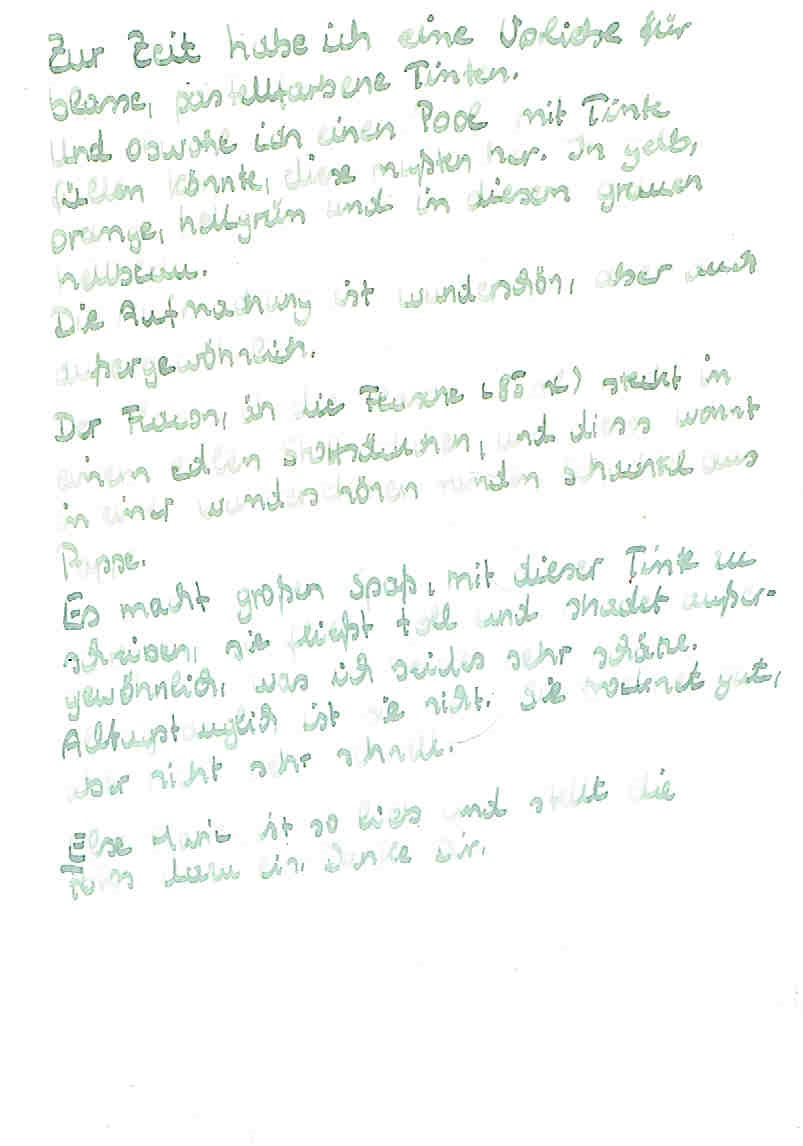 Zur Zeit habe ich eine Vorliebe für
blasse, pastellfarbene Tinten.
Und obwohl ich einen Pool mit Tinte
füllen könnte, diese mußten her. In gelb,
orange, hellgrün und in diesem grauen
hellblau.
Die Aufmachung ist wunderschön, aber auch
außergewöhnlich.
Der Flacon, äh die Flasche (85 ml) steckt in
einem edlen Stoffsäckchen, und dieses wohnt
in einer wunderschönen runden Schachtel aus
Pappe.
Es macht großen Spaß, mit dieser Tinte zu
schreiben, sie fließt toll und shadet außer-
gewöhnlich, was ich beides sehr schätze.
Alltagstauglich ist sie nicht. Sie trocknet gut,
aber nicht sehr schnell.
Else Marie ist so lieb und stellt die
dazu ein. Danke Dir.